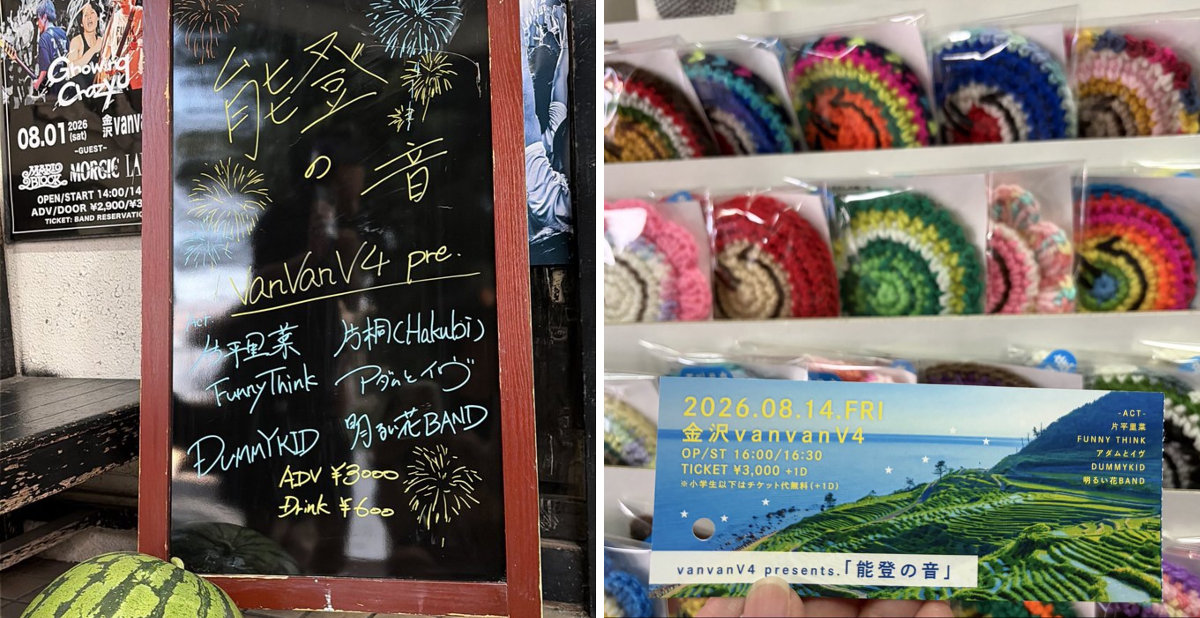 Growing
Crazy
08.01 2026 (sat) 金沢 vanva
-GUEST-
MARIO BLOCK MORGIC LA
OPEN/START 14:00/14
ADV/DOOR ¥2,900/¥3
TICKET: BAND RESERVATIO
能登
の
音
vanvanV4 pre.
Act.
片平里菜 片桐(Hakubi)
FunnyThink アダムとイヴ
DUMMYKID 明るい花BAND
ADV ¥3000
Drink ¥600
2026.08.14.FRI
金沢vanvanV4
OP/ST 16:00/16:30
TICKET ¥3,000 +1D
※小学生以下はチケット代無料(+1D)
-ACT-
片平里菜
FUNNY THINK
アダムとイヴ
DUMMYKID
明るい花BAND
vanvanV4 presents.「能登の音」